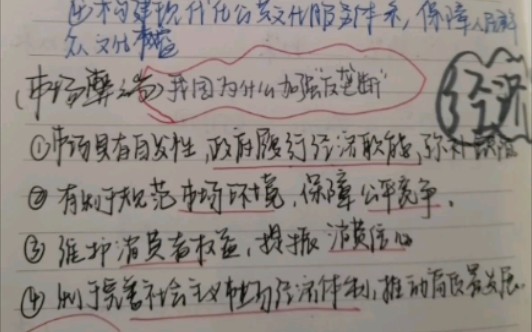 ④构建现代化公共文化服务体系，保障人民群
众文化权益
(市场弊端) 我国为什么加强"反垄断"
①市场具有自发性，政府履行经济职能，弥补
②有利于规范市场环境，保障公平竞争。
③维护消费者权益，提振消费信心
④利于完善社会主义市场经济体制，推动高质量发展。